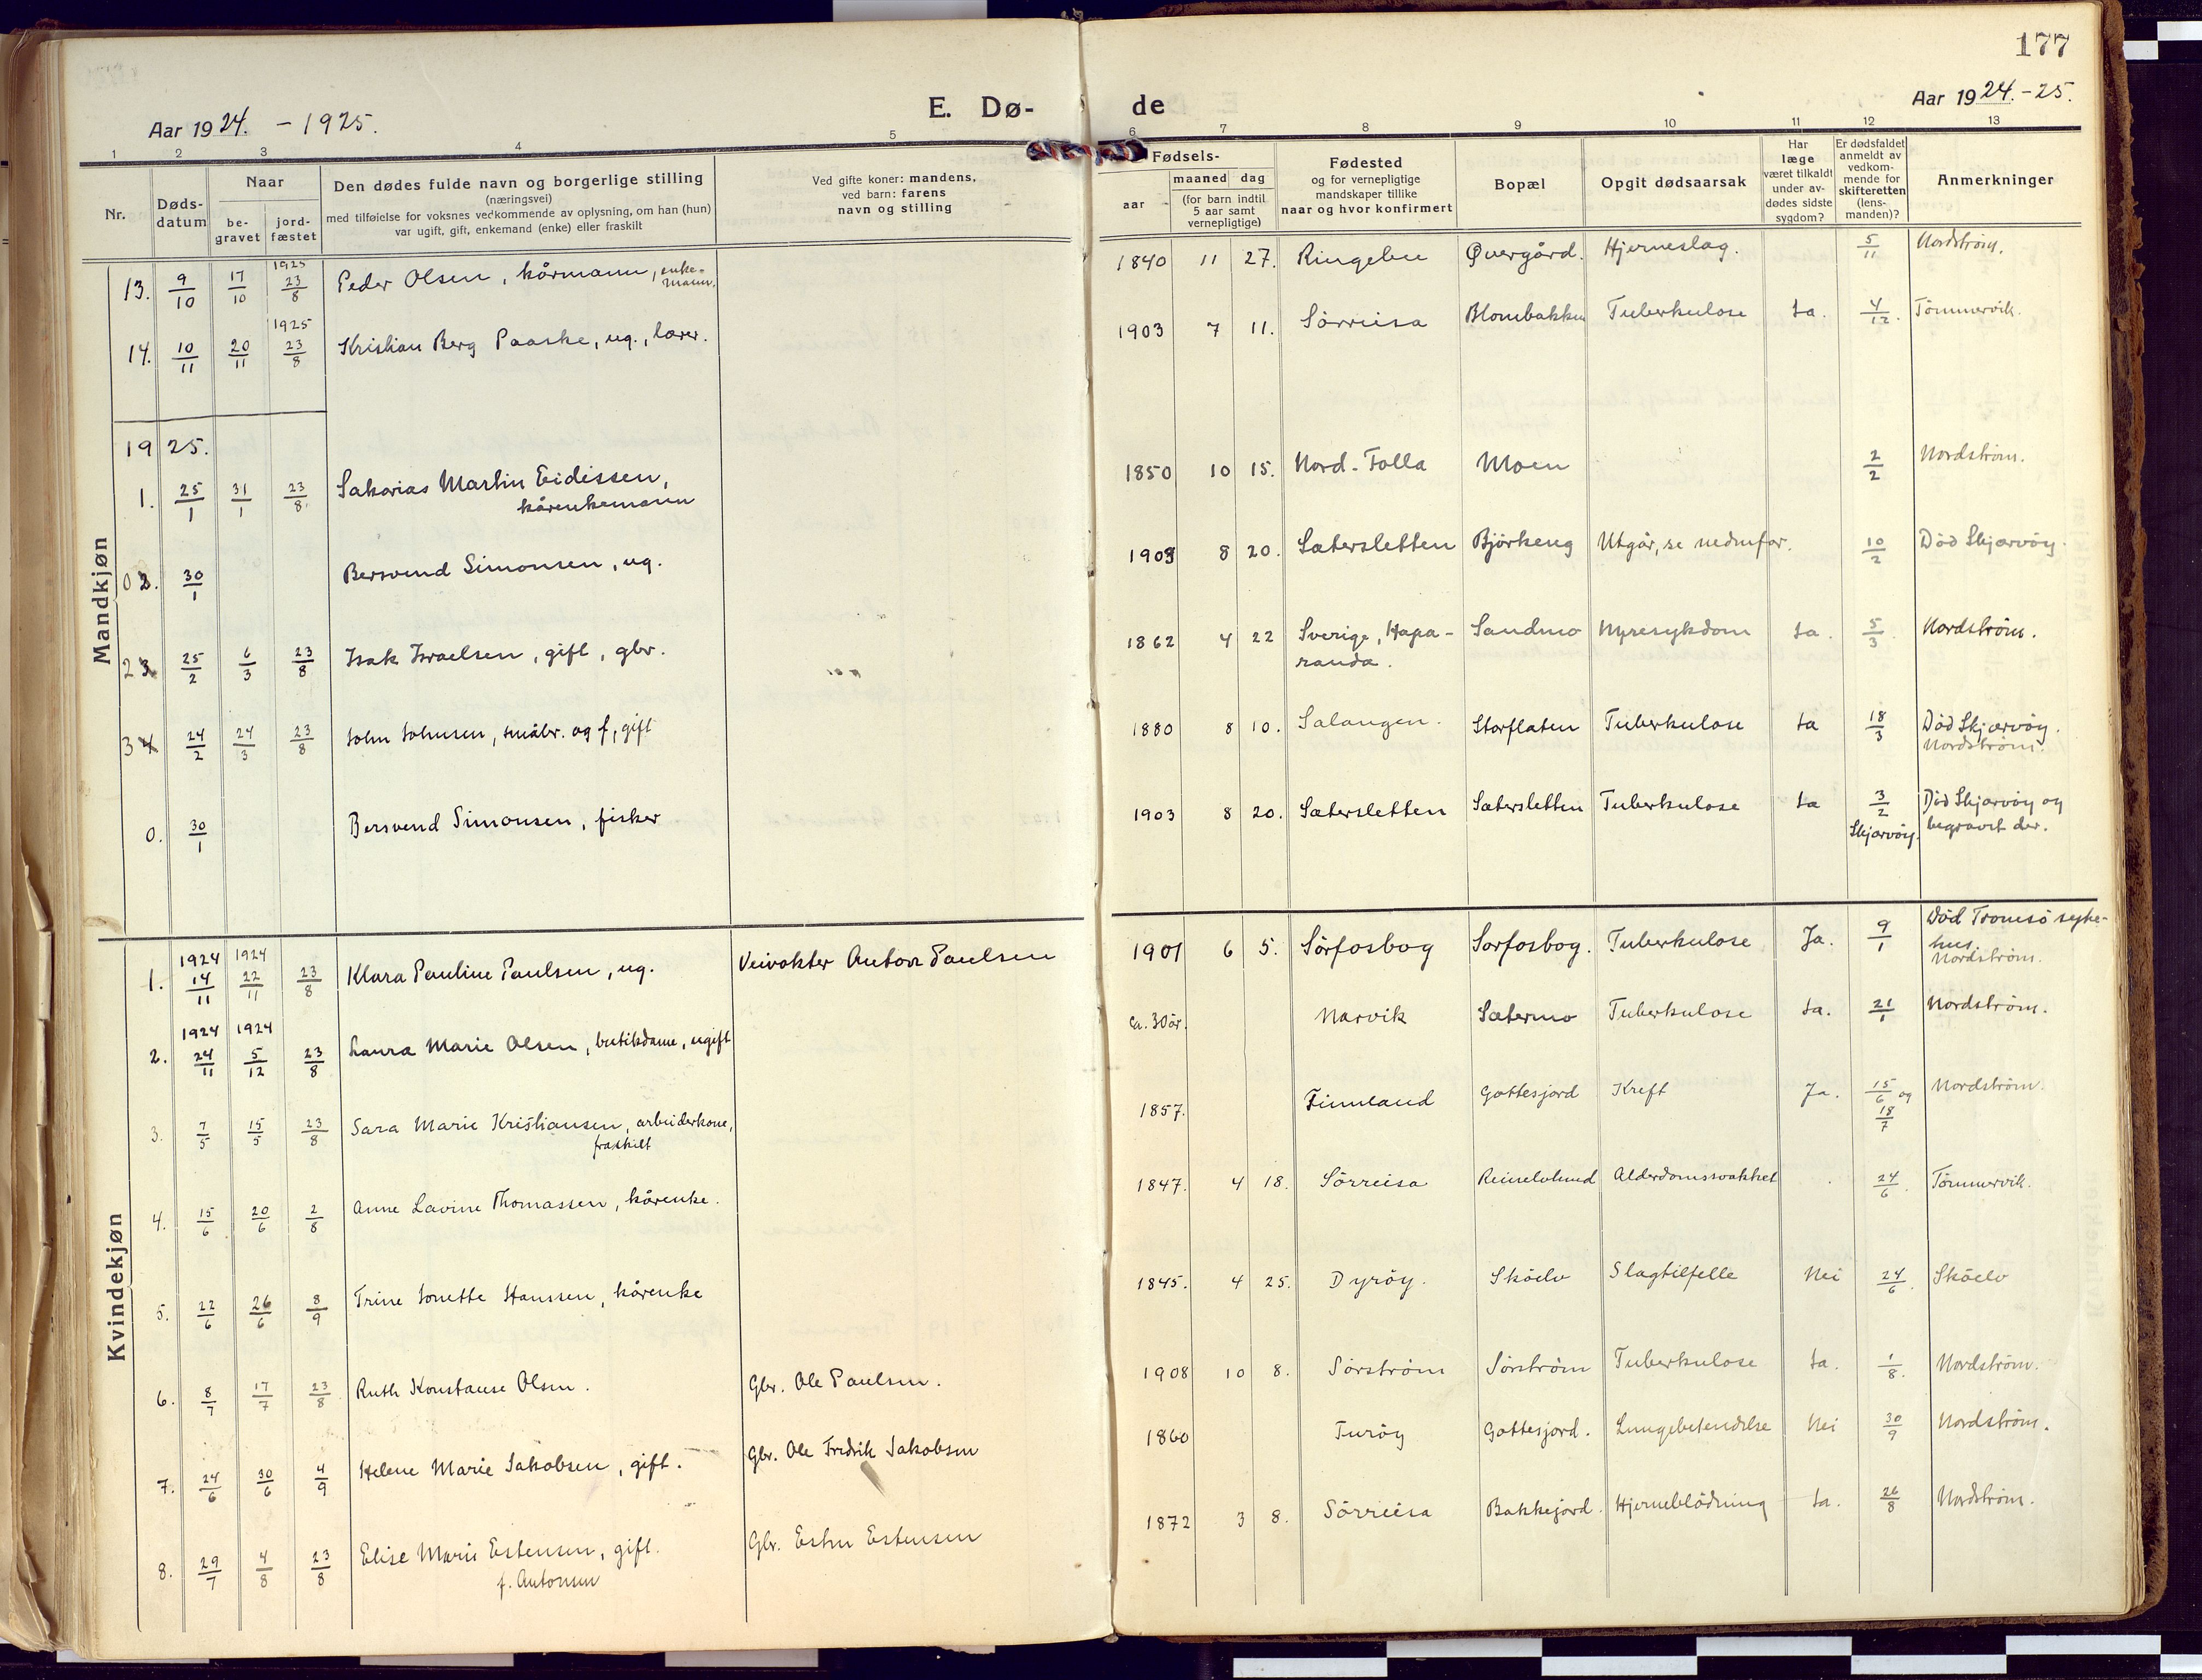 177
Aar 1924. - 1925.
E. Dø-
de
Aar 1924. - 25.
1 2 3 4 5 6 7 8 9 10 11 12 13
Nr.
Døds-
datum
Naar
be-
gravet
jord-
fæstet
Den dødes fulde navn og borgerlige stilling
(næringsvei)
med tilføielse for voksnes vedkommende av oplysning, om han (hun)
var ugift, gift, enkemand (enke) eller fraskilt
Ved gifte koner: mandens,
ved barn: farens
navn og stilling
Fødsels-
aar
maaned dag
(for barn indtil
5 aar samt
vernepligtige)
Fødested
og for vernepligtige
mandskaper tillike
naar og hvor konfirmert
Bopæl
Opgit dødsaarsak
Har
læge
været tilkaldt
under av-
dødes sidste
sygdom?
Er dødsfaldet
anmeldt av
vedkom-
mende for
skifteretten
(lens-
manden)?
Anmerkninger
Mandkjøn
13. 9/10 17/10 1925 23/8 Peder Olsen, kårmann, enke-
mann. 1840 11 27. Ringebu Øvergård. Hjerneslag. 5/11 Nordstrøm.
14. 10/11 20/11 1925 23/8 Kristian Berg Paaske, ug., lærer. 1903 7 11. Sørreisa Blombakken Tuberkulose Ja. 4/12. Tømmervik.
1925.
1. 25/1 31/1 23/8. Sakarias Martin Eidissen,
kårenkemann 1850 10 15. Nord-Folla Moen 2/2 Nordstrøm.
0 2. 30/1 Bersvend Simonsen, ug. 1903 8 20. Sætersletten Bjørkeng Utgår, se nedenfor. 10/2 Død Skjærvøy.
2 3. 25/2 6/3 23/8 Isak Israelsen, gift, gbr. 1862 4 22 Sverige, Hapa-
randa. Sandmo Nyresykdom Ja. 5/3 Nordstrøm.
3 4 24/2 24/3 23/8 John Johnsen, småbr. og f, gift 1880 8 10. Salangen. Storflaten Tuberkulose Ja 18/3 Død Skjærvøy.
Nordstrøm.
0. 30/1 Bersvend Simonsen, fisker 1903 8 20. Sætersletten Sætersletten Tuberkulose Ja 3/2
Skjærvøy. Død Skjærvøy og
begravet der.
Kvindekjøn
1. 1924 14/11 1924 22/11 23/8 Klara Pauline Paulsen, ug. Veivokter Anton Paulsen 1901 6 5. Sørfosbog Sørfosbog. Tuberkulose Ja. 9/1 Død Tromsø syke-
hus.
Nordstrøm.
2. 1924 24/11 1924 5/12 23/8 Laura Marie Olsen, butikdame, ugift ca. 30 år. Narvik Sætermo Tuberkulose Ja. 21/1 Nordstrøm.
3. 7/5 15/5 23/8 Sara Marie Kristiansen, arbeiderkone,
fraskilt 1857. Finnland Gottesjord Kreft Ja. 15/6 og
18/7 Nordstrøm.
4. 15/6 20/6 2/8 Anne Lavine Thomassen, kårenke. 1847. 4 18. Sørreisa Reinelvlund Alderdomssvakhet 24/6. Tømmervik.
5. 22/6 26/6 8/9 Trine Jonette Hanssen, kårenke 1845. 4 25. Dyrøy. Skøelv Slagtilfelle Nei 24/6. Skøelv
6. 8/7 17/7 23/8 Ruth Konstanse Olsen. Gbr. Ole Paulsen. 1908 10 8. Sørstrøm Sørstrøm Tuberkulose Ja. 1/8. Nordstrøm.
7. 24/6 30/6 4/9 Helene Marie Jakobsen, gift. Gbr. Ole Fredrik Jakobsen 1860 Turøy Gottesjord. Lungebetendelse Nei 30/9 Nordstrøm.
8. 29/7 4/8 23/8 Elise Marie Estensen, gift.
f. Antonsen Gbr. Esten Estensen 1872 3 8. Sørreisa Bakkejord. Hjerneblødning Ja. 26/8 Nordstrøm.